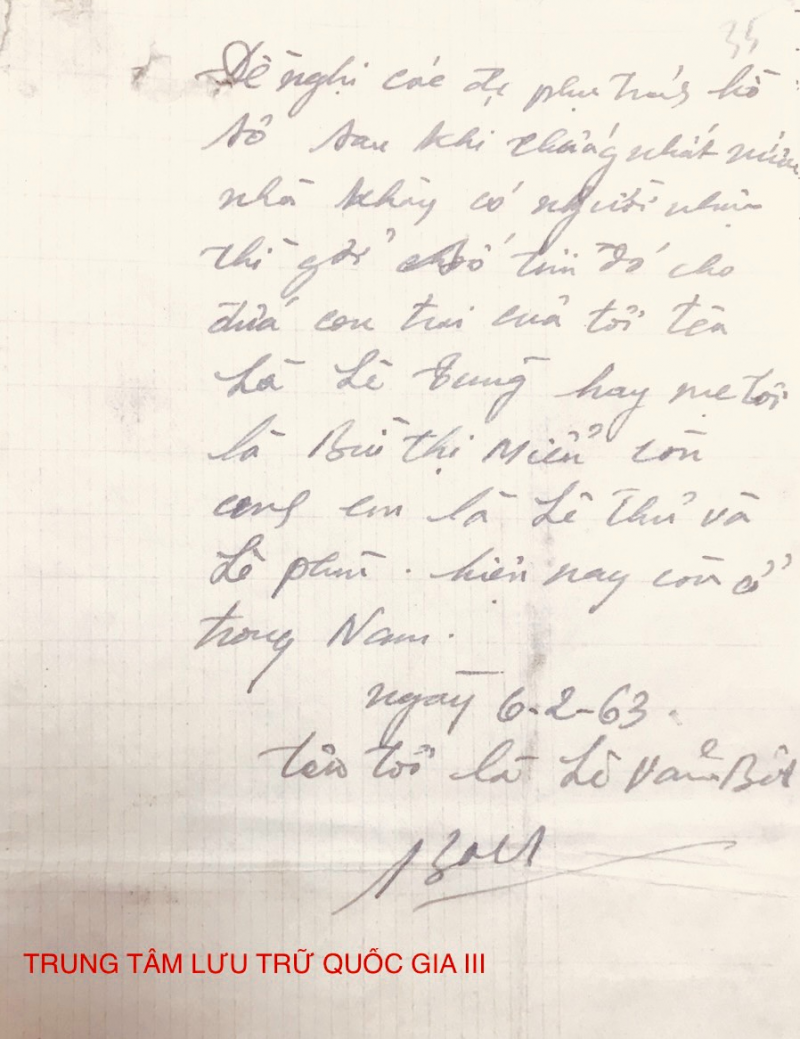 35
Đề nghị các đ/c phụ trách hồ
sơ sau khi thống nhất nước
nhà không có người nhận
thì gởi số tiền đó cho
đứa con trai của tôi tên
Là Lê Tung hay mẹ tôi
là Bùi thị Miễn còn
em là Lê Thử và
Lê phùn. hiện nay còn ở
trong Nam.
ngày 6-2-63.
tên tôi là Lê Văn
TRUNG TÂM LƯU TRỮ QUỐC GIA III